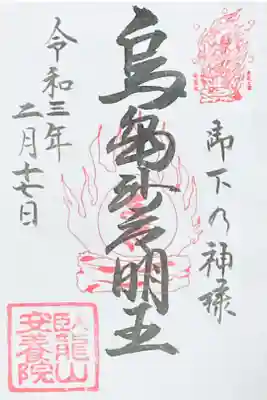 御下乃神様
烏芻沙摩明王
令和三年
二月十七日
臥龍山
安養院